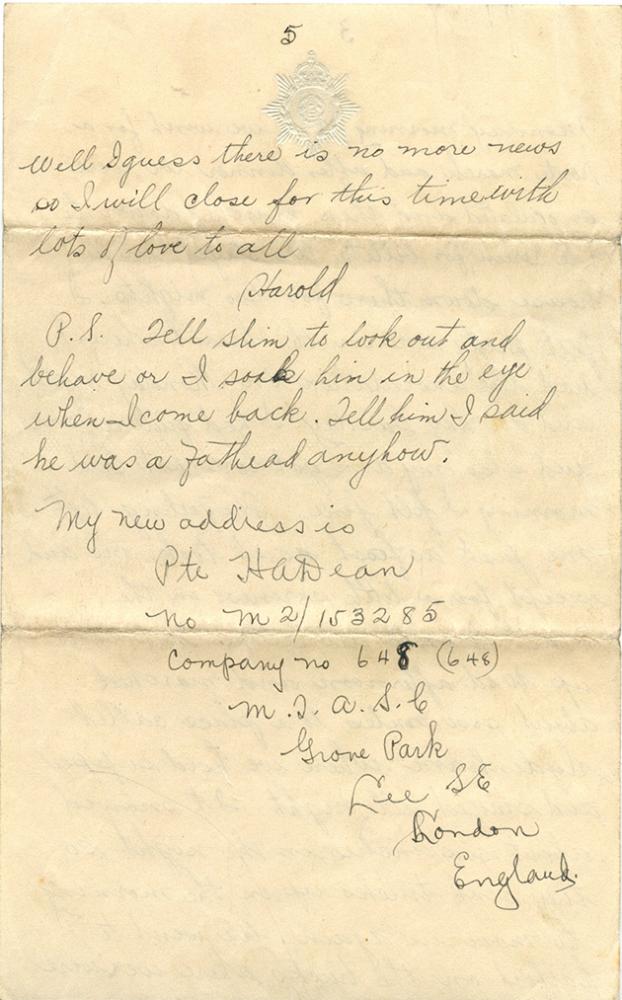 5
Well I guess there is no more news
so I will close for this time with
lots of love to all
Harold
P.S. Tell slim to look out and
behave or I soak him in the eye
when I come back. Tell him I said
he was a Fathead anyhow.
My new address is
Pte H A Dean
No M2/153285
Company no 648 (648)
M.T. A.S.C
Grove Park
Lee SE
London
England.